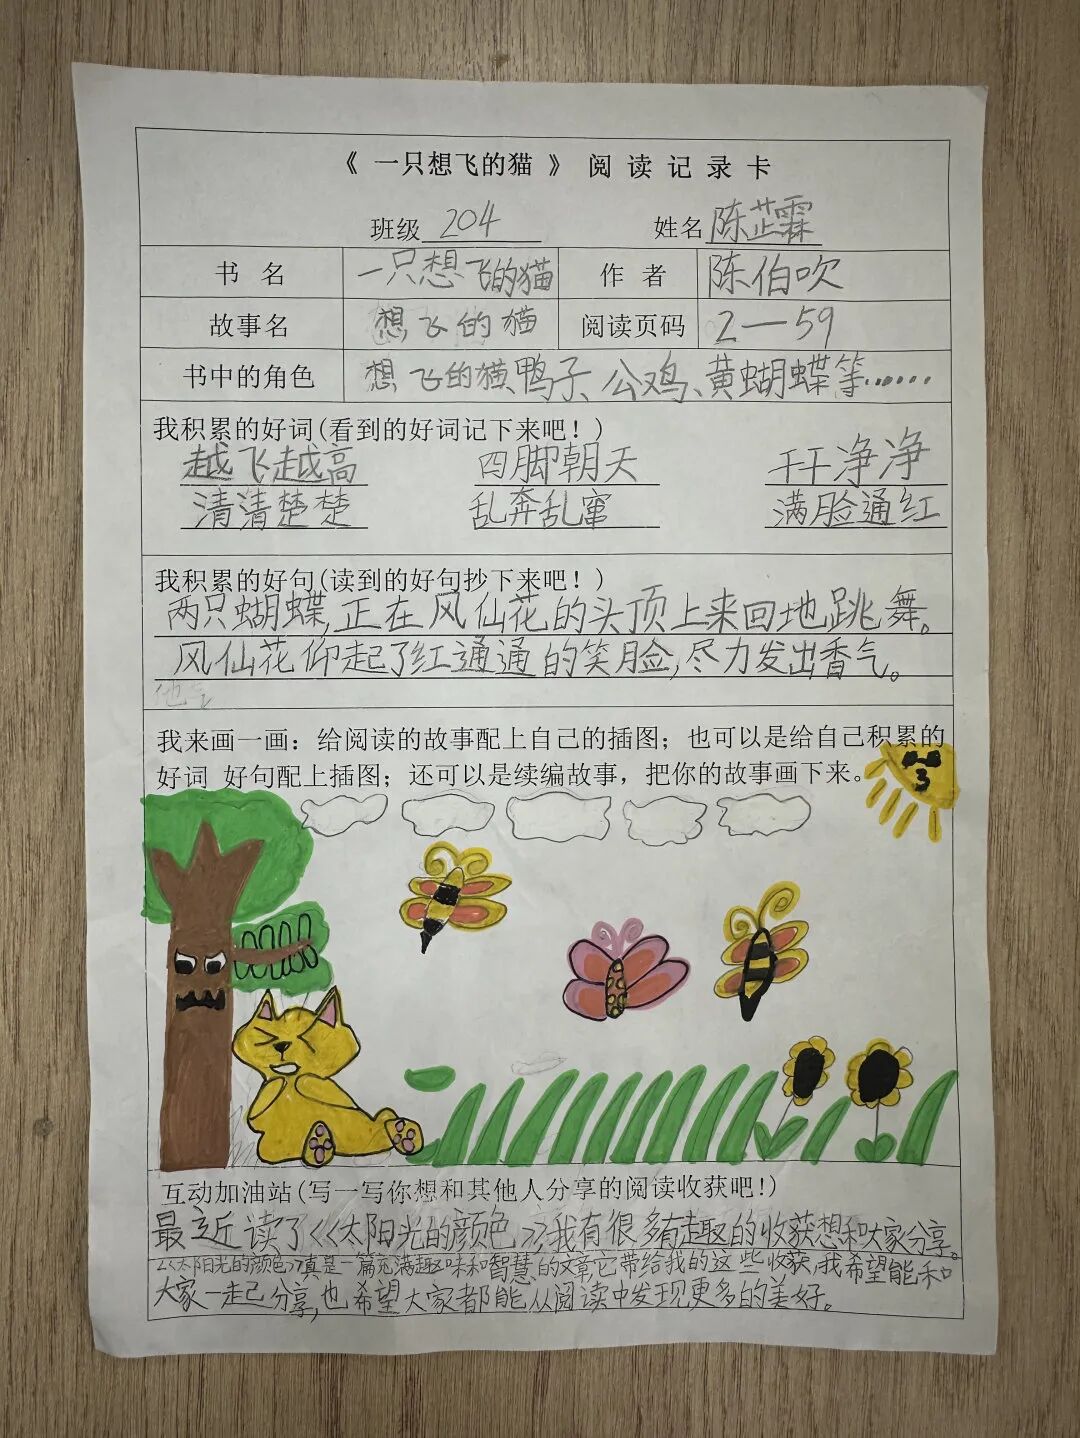 《 一只想飞的猫 》 阅 读 记 录 卡
班级 204 姓名 陈芷霖
书 名 一只想飞的猫 作 者 陈伯吹
故事名 想飞的猫 阅读页码 2—59
书中的角色 想飞的猫、鸭子、公鸡、黄蝴蝶等……
我积累的好词(看到的好词记下来吧！)
越飞越高 四脚朝天 干干净净
清清楚楚 乱奔乱窜 满脸通红
我积累的好句(读到的好句抄下来吧！)
两只蝴蝶,正在风仙花的头顶上来回地跳舞。
风仙花仰起了红通通的笑脸,尽力发出香气。
我来画一画：给阅读的故事配上自己的插图；也可以是给自己积累的
好词 好句配上插图；还可以是续编故事，把你的故事画下来。
互动加油站(写一写你想和其他人分享的阅读收获吧!)
最近读了<<太阳光的颜色>>,我有很多有趣的收获想和大家分享。
<<太阳光的颜色>>真是一篇充满趣味和智慧的文章,它带给我的这些收获,我希望能和
大家一起分享,也希望大家都能从阅读中发现更多的美好。